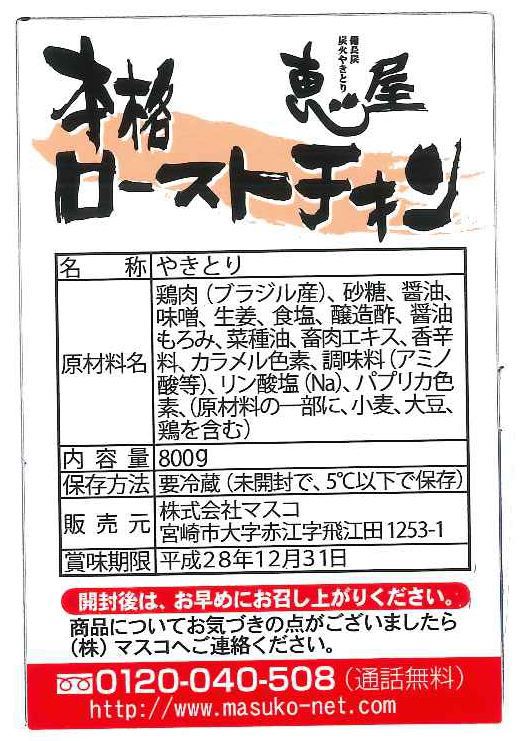 備長炭
炭火やきとり
恵屋
本格
ローストチキン
名称 やきとり
原材料名 鶏肉(ブラジル産)、砂糖、醤油、
味噌、生姜、食塩、醸造酢、醤油
もろみ、菜種油、畜肉エキス、香辛
料、カラメル色素、調味料(アミノ
酸等)、リン酸塩(Na)、パプリカ色
素、(原材料の一部に、小麦、大豆、
鶏を含む)
内容量 800g
保存方法 要冷蔵(未開封で、5℃以下で保存)
販売元 株式会社マスコ
宮崎市大字赤江字飛江田1253-1
賞味期限 平成28年12月31日
開封後は、お早めにお召し上がりください。
商品についてお気づきの点がございましたら
(株)マスコへご連絡ください。
0120-040-508(通話無料)
http://www.masuko-net.com